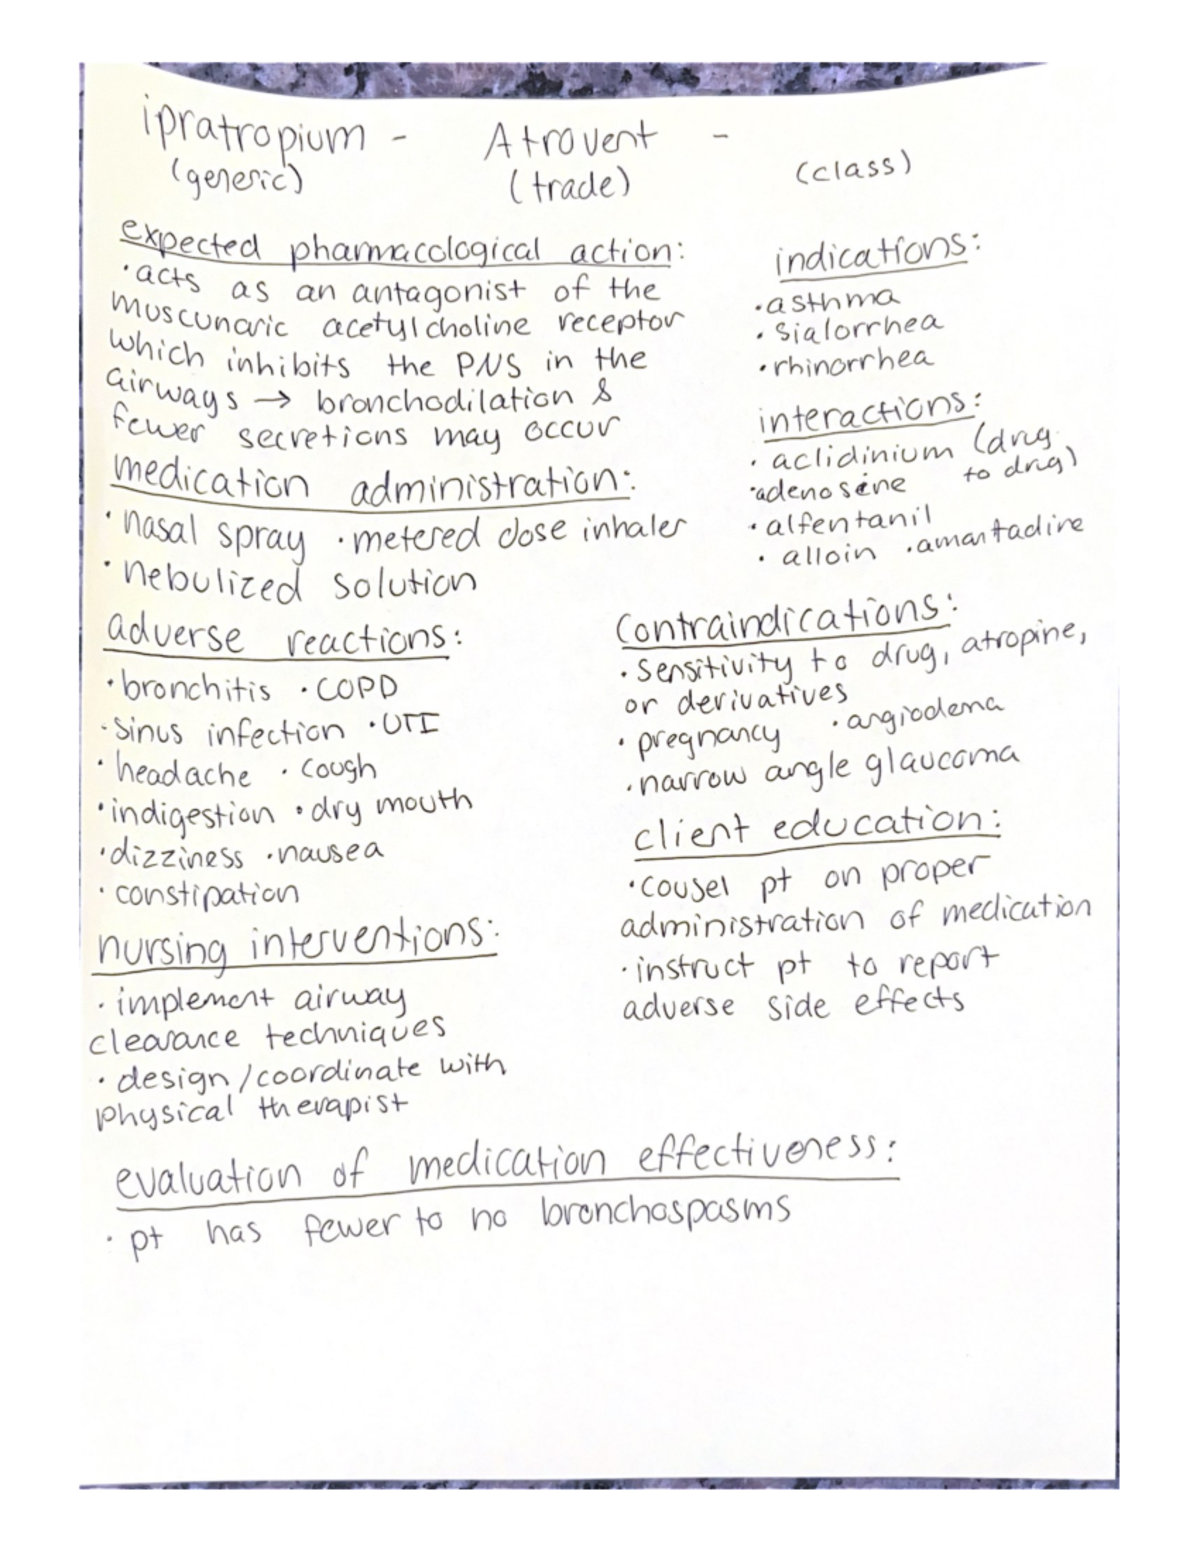 ipratropium - Atrovent -
(generic) (trade) (class)
expected pharmacological action:
·acts as an antagonist of the
muscunaric acetylcholine receptor
which inhibits the PNS in the
airways → bronchodilation &
fewer secretions may occur
indications:
·asthma
·sialorrhea
·rhinorrhea
interactions:
·aclidinium (drug to drug)
·adenosine
·alfentanil
·alloin ·amantadine
medication administration:
·nasal spray ·metered dose inhaler
·nebulized solution
adverse reactions:
·bronchitis ·COPD
·sinus infection ·UTI
·headache ·cough
·indigestion ·dry mouth
·dizziness ·nausea
·constipation
contraindications:
·sensitivity to drug, atropine,
or derivatives
·pregnancy ·angiodema
·narrow angle glaucoma
client education:
·cousel pt on proper
administration of medication
·instruct pt to report
adverse side effects
nursing interventions:
·implement airway
clearance techniques
·design/coordinate with
physical therapist
evaluation of medication effectiveness:
·pt has fewer to no bronchospasms